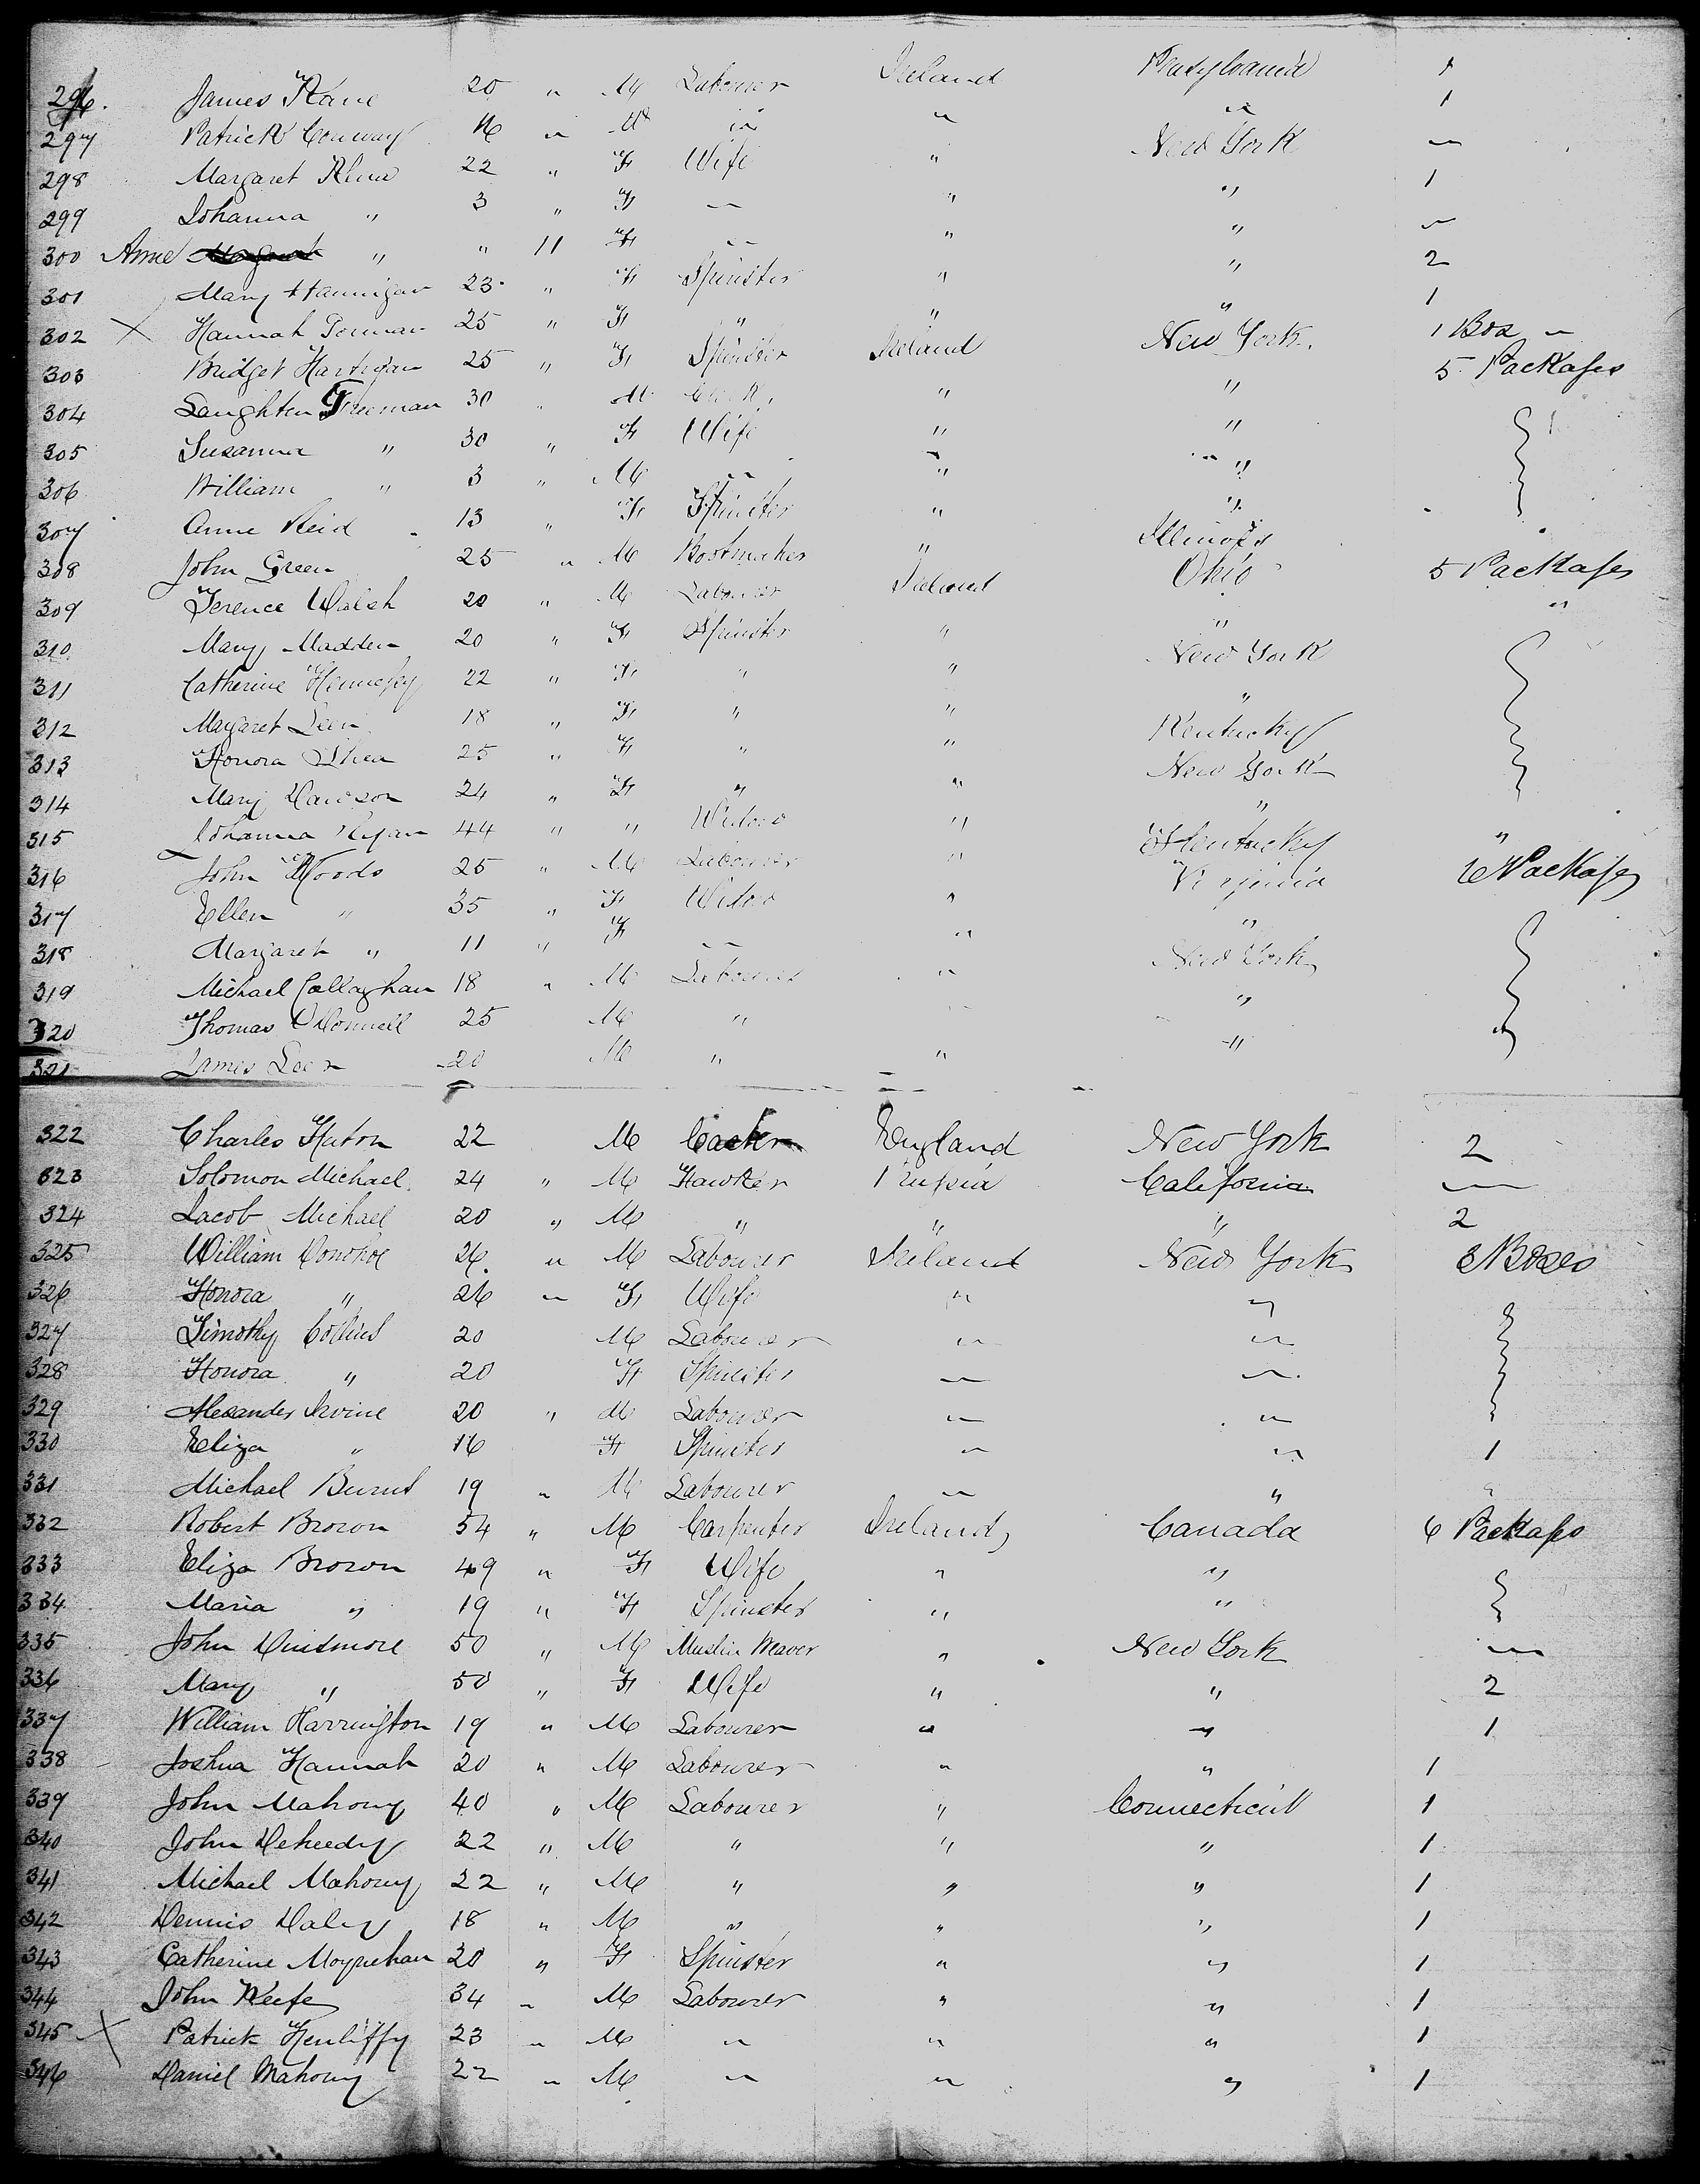 296. James Kane 20 " M Labourer Ireland 1
297 Patrick Conway 16 " M " " " 1
298 Margaret 22 " F Wife " New York "
299 Johanna " 3 " F " " " 1
300 Anne " " 11 F " " " "
301 Mary Hannigan 23 " F Spinster " " 2
302 X Hannah 25 " F " " " 1
303 Bridget Hartigan 25 " F Spinster Ireland New York 1 Box "
304 Laughten Freeman 30 " M " " 5 Packages
305 Susanna " 30 " F Wife " "
306 William " 3 " M " " "
307 Anne Reid 13 " F Spinster " "
308 John Green 25 " M Bootmaker " Illinois
309 Terence Walsh 20 " M Labourer Ireland Ohio 5 Packages
310 Mary Madden 20 " F Spinster " " "
311 Catherine Hennessy 22 " F " " New York
312 Margaret Leen 18 " F " " "
313 Honora Shea 25 " F " " Kentucky
314 Mary Dawson 24 " F " " New York
315 Johanna Ryan 44 " " Widow " "
316 John Woods 25 " M Labourer " Kentucky "
317 Ellen " 35 " F Widow " Virginia 6 Packages
318 Margaret " 11 " F " " "
319 Michael Callaghan 18 " M Labourer " New York
320 Thomas O'Donnell 25 M " " "
321 James Leen 20 M " " "
322 Charles Haton 22 M England New York 2
323 Solomon Michael 24 " M Hawker Prussia California "
324 Jacob Michael 20 " M " " " 2
325 William Donohoe 26 " M Labourer Ireland New York 3 Boxes
326 Honora " 26 " F Wife " "
327 Timothy Collins 20 M Labourer " "
328 Honora " 20 F Spinster " "
329 Alexander Irvine 20 " M Labourer " "
330 Eliza " 16 F Spinster " " 1
331 Michael Burns 19 " M Labourer " " "
332 Robert Brown 54 " M Carpenter Ireland Canada 6 Packages
333 Eliza Brown 49 " F Wife " "
334 Maria " 19 " F Spinster " "
335 John Dinsmore 50 " M Muslin Weaver " New York "
336 Mary " 50 " F Wife " " 2
337 William Harrington 19 " M Labourer " " 1
338 Joshua Hannah 20 " M Labourer " " 1
339 John Mahony 40 " M Labourer " Connecticut 1
340 John 22 " M " " " 1
341 Michael Mahony 22 " M " " " 1
342 Dennis Daley 18 " M " " " 1
343 Catherine Moynehan 20 " F Spinster " " 1
344 John Keefe 34 " M Labourer " " 1
345 X Patrick Henliffy 23 " M " " " 1
346 Daniel Mahony 22 " M " " " 1